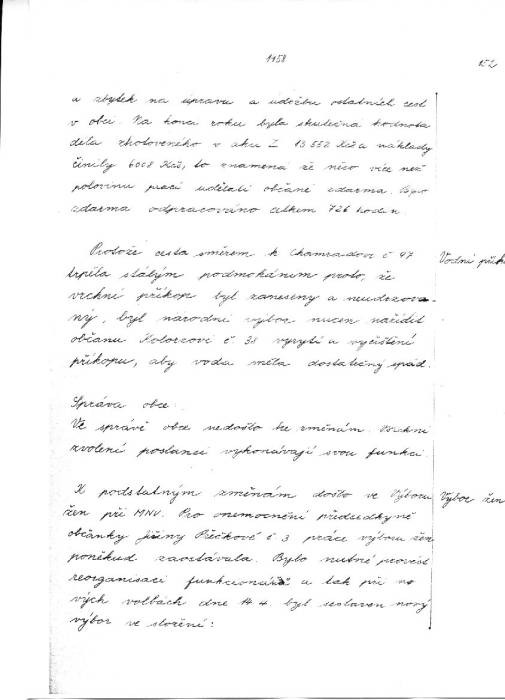 1958
152
a zbytek na úpravu a údržbu ostatních cest
v obci. Na konci roku byla skutečná hodnota
díla zhotoveného v akci Z 13 552 Kčs a náklady
činily 6008 Kčs, to znamená že něco více než
polovinu prací udělali občané zdarma. Bylo
zdarma odpracováno celkem 726 hodin
Protože cesta směrem k Chamradovi č 97
trpěla stálým podmokáním proto, že
vrchní příkop byl zanesený a neudržova-
ný, byl národní výbor nucen nařídit
občanu Kolorzovi č 38 vyrytí a vyčištění
příkopu, aby voda měla dostatečný spád.
Vodní přík
Správa obce.
Ve správě obce nedošlo ke změnám. Všichni
zvolení poslanci vykonávají svou funkci.
K podstatným změnám došlo ve Výboru
žen při MNV. Pro onemocnění předsedkyně
občanky Jiřiny Pěčkové č 3 práce výboru žen
poněkud zaostávala. Bylo nutné provést
reorganisaci funkcionářů a tak při no
vých volbách dne 14.4. byl sestaven nový
výbor ve složení:
Výbor žen